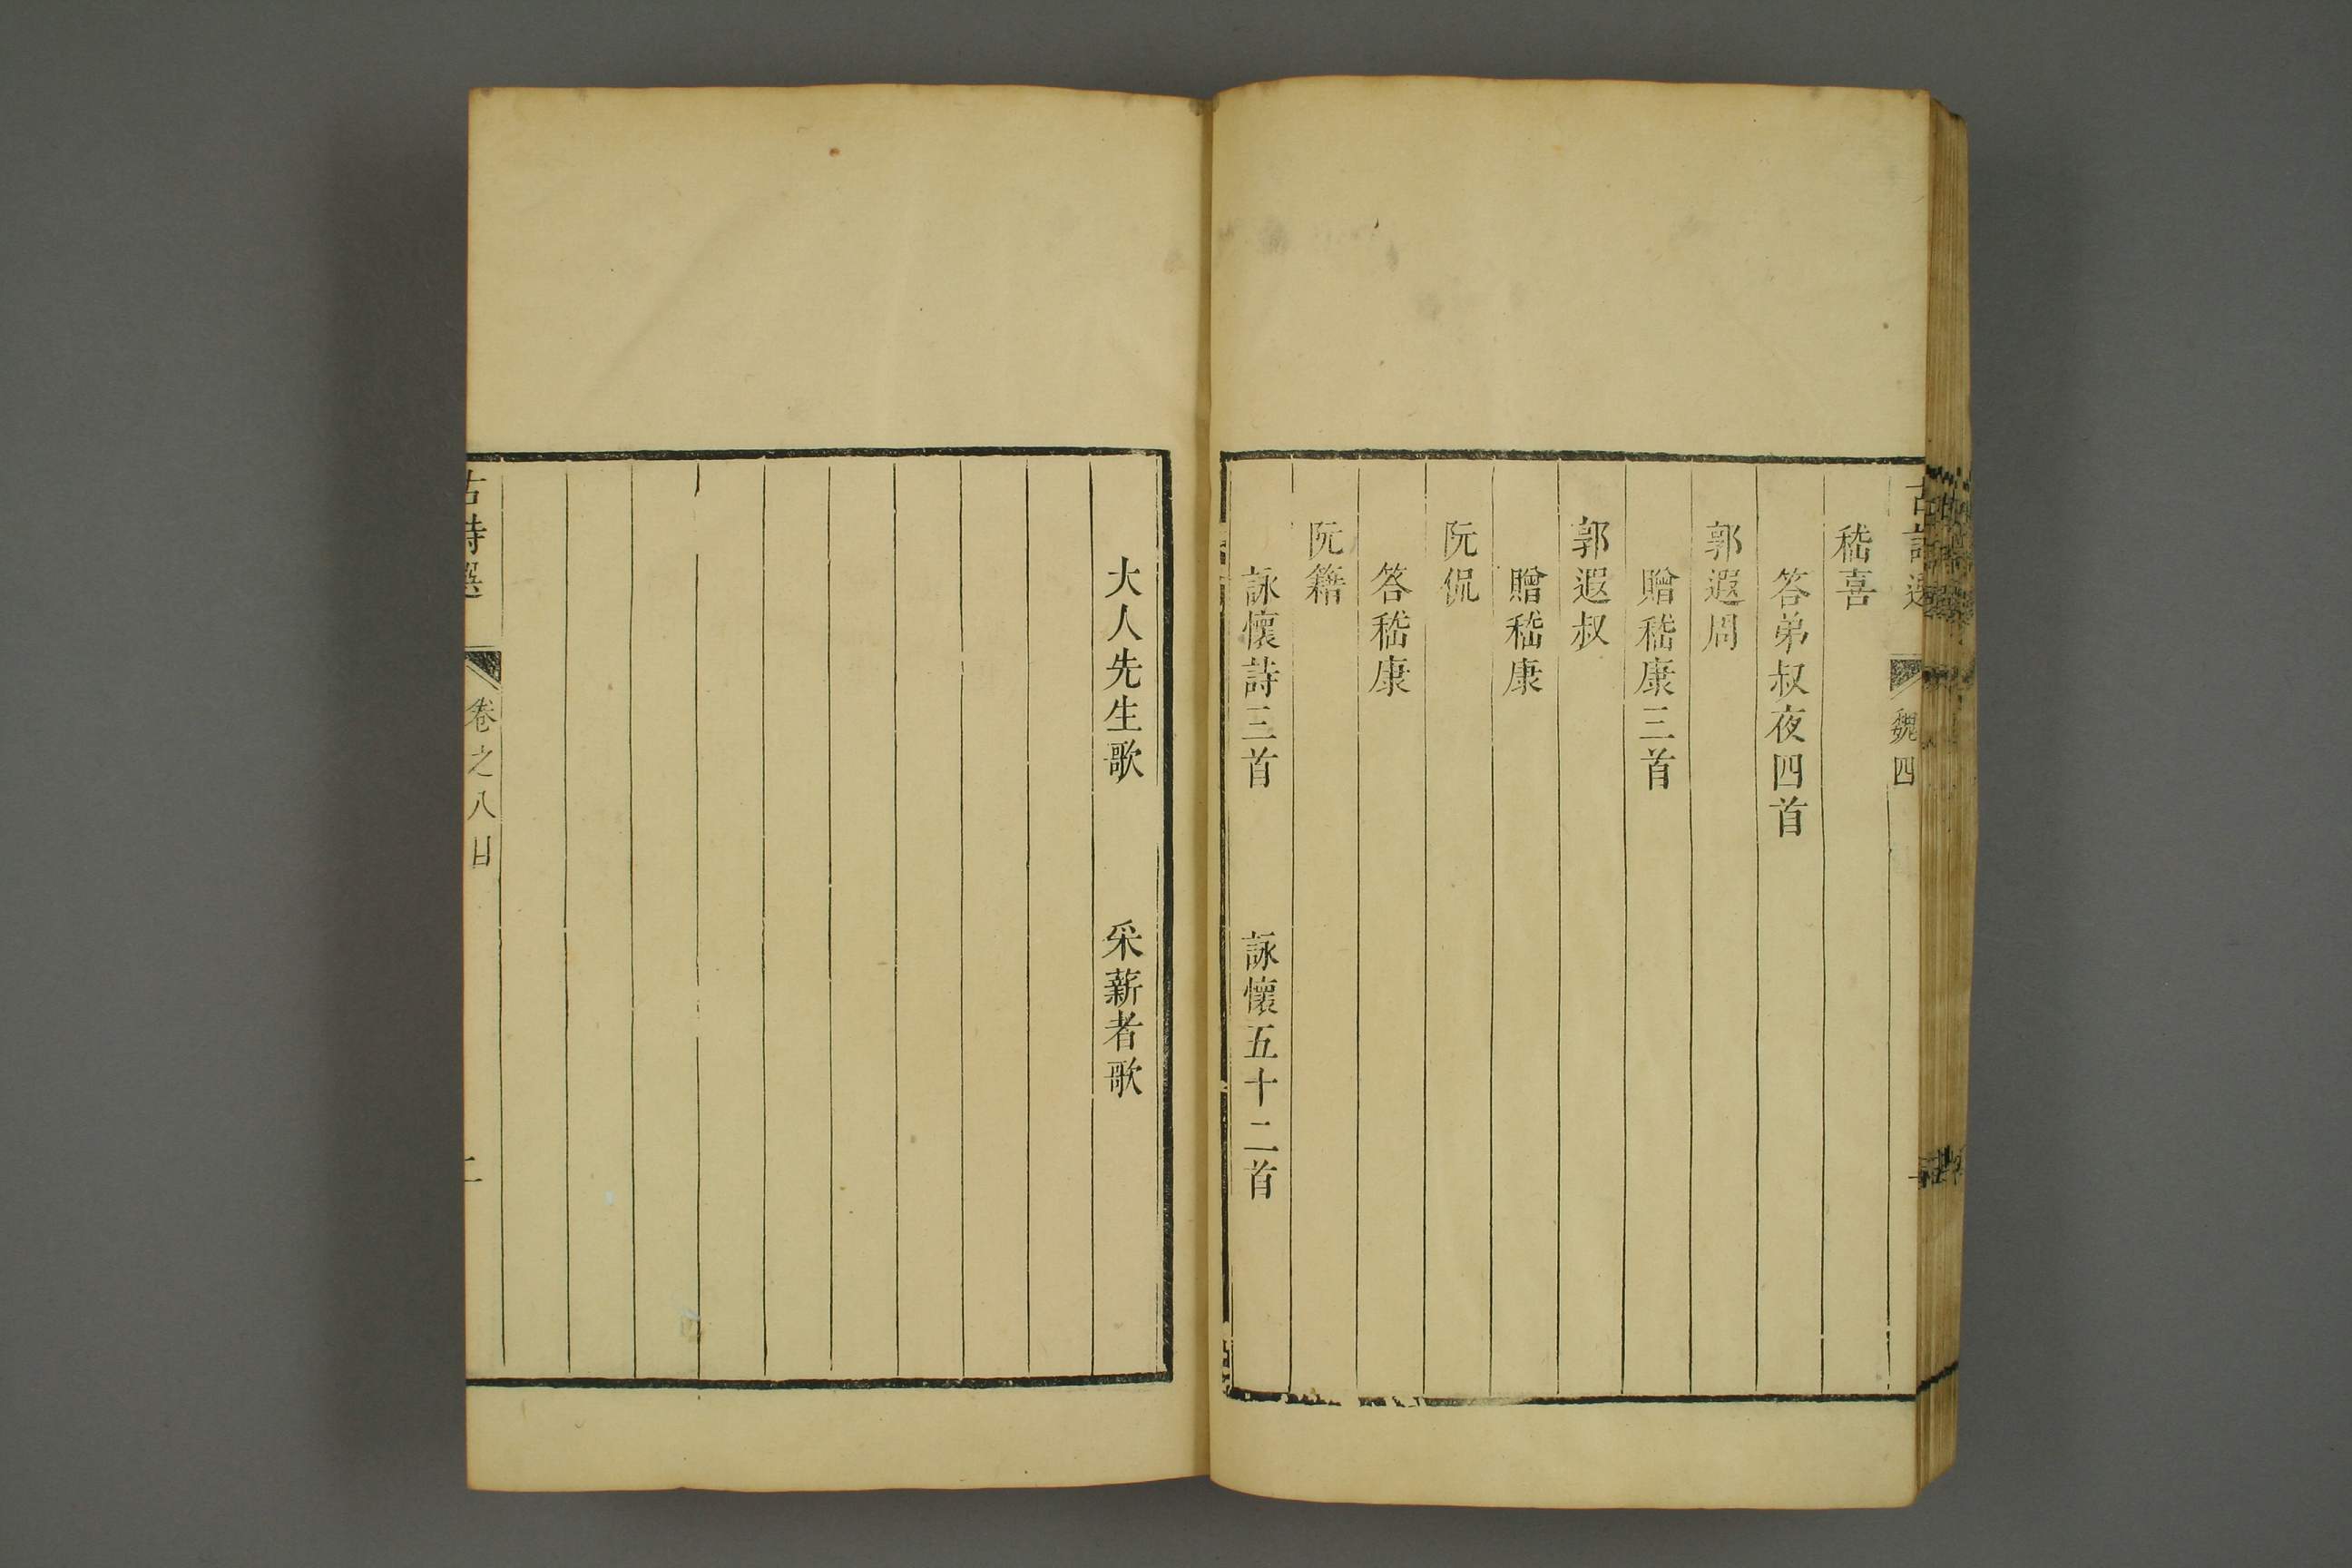 魏四
嵇喜
答弟叔夜四首
郭遐周
贈嵇康三首
郭遐叔
贈嵇康
阮侃
答嵇康
阮籍
詠懷詩三首　詠懷五十二首
大人先生歌　采薪者歌
古詩選　卷之八目　二